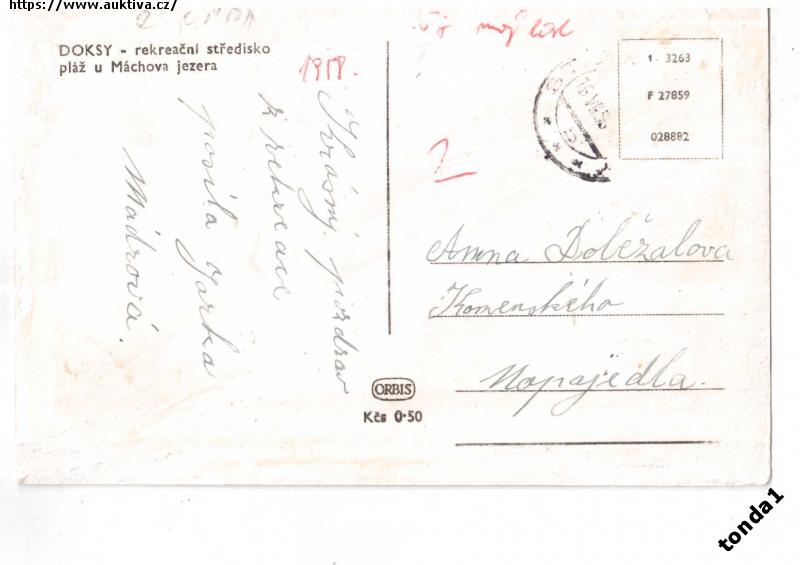 https://www.auktiva.cz/
DOKSY - rekreační středisko
pláž u Máchova jezera
1958.
1 - 3263
F 27859
028882
2
Krásný pozdrav
z rekreace
posílá Jarka
Mádrová.
Anna Doležalova
Komenského
Napajedla.
ORBIS
Kčs 0·50
tonda1